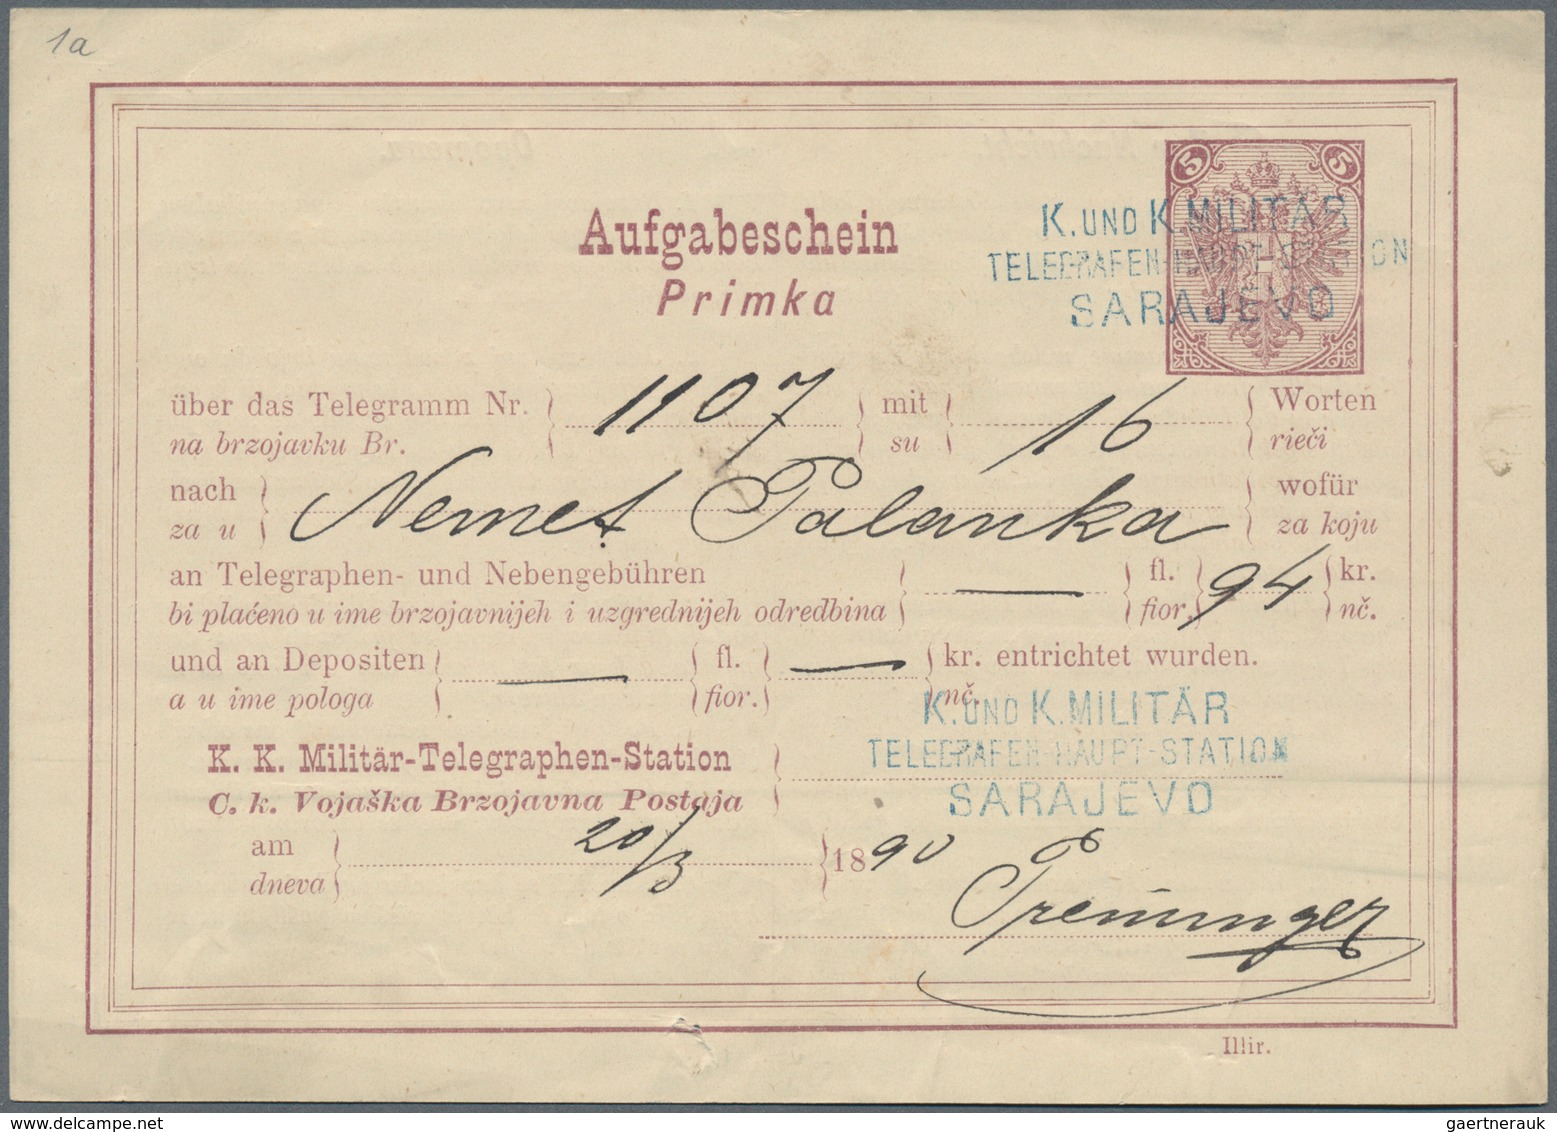 1a
5 5
K. UND K. MILITÄR
TELEGRAFEN-HAUPT-STATION
SARAJEVO
Aufgabeschein
Primka
über das Telegramm Nr. 1107 mit 16 Worten
na brzojavku Br. su rieči
nach Nemet Palanka wofür
za u za koju
an Telegraphen- und Nebengebühren — fl. 94 kr.
bi plaćeno u ime brzojavnijeh i uzgrednijeh odredbina fior. nč.
und an Depositen — fl. — kr. entrichtet wurden.
a u ime pologa fior. nč.
K. UND K. MILITÄR
TELEGRAFEN-HAUPT-STATION
SARAJEVO
K. K. Militär-Telegraphen-Station
C. k. Vojaška Brzojavna Postaja
am 20/3 1890
dneva
Illir.
gaertnerauk @ delcampe.net